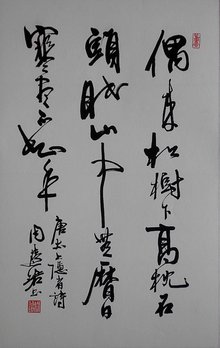 偶来松樹下高枕石
頭眠山中無曆日
寒盡不知年
唐太上隱者詩